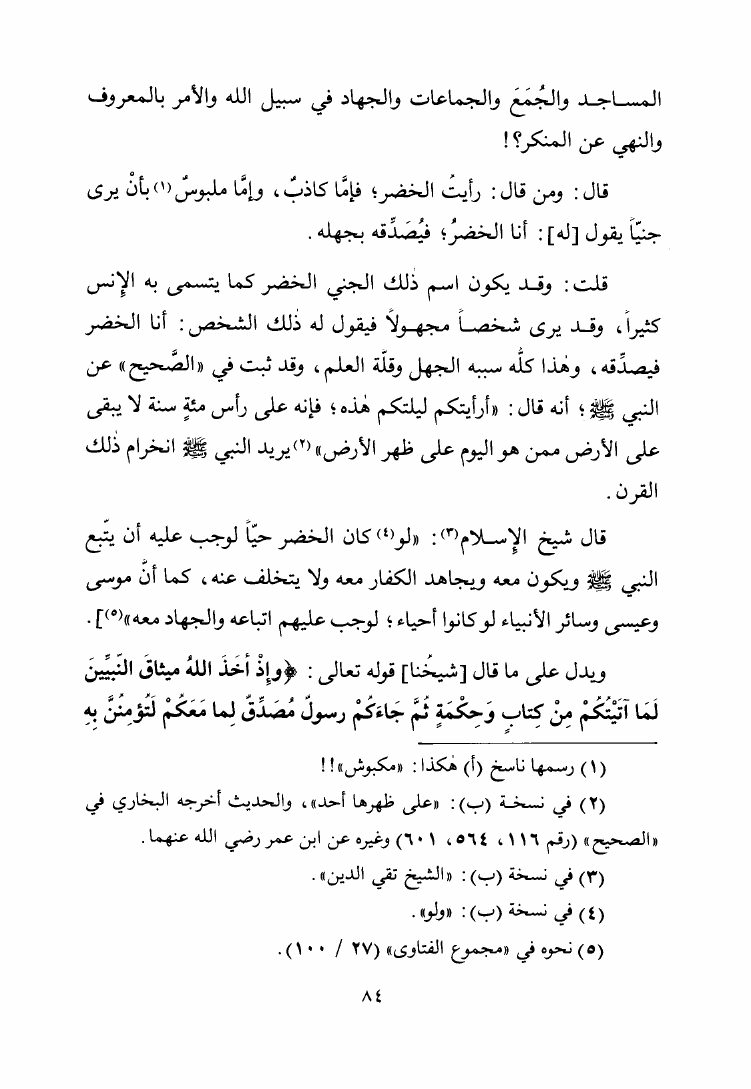 المساجد والجُمَعَ والجماعات والجهاد في سبيل الله والأمر بالمعروف
والنهي عن المنكر؟!
قال: ومن قال: رأيتُ الخضر؛ فإمَّا كاذبٌ، وإمَّا ملبوسٌ(١) بأنْ يرى
جنيّاً يقول [له]: أنا الخضرُ؛ فيُصَدِّقه بجهله.
قلت: وقد يكون اسم ذٰلك الجني الخضر كما يتسمى به الإِنس
كثيراً، وقد يرى شخصاً مجهولاً فيقول له ذٰلك الشخص: أنا الخضر
فيصدِّقه، وهٰذا كلُّه سببه الجهل وقلَّة العلم، وقد ثبت في «الصَّحيح» عن
النبي ﷺ؛ أنه قال: «أرأيتكم ليلتكم هٰذه؛ فإنه على رأس مئةٍ سنة لا يبقى
على الأرض ممن هو اليوم على ظهر الأرض»(٢) يريد النبي ﷺ انخرام ذٰلك
القرن.
قال شيخ الإِسلام(٣): «لو(٤) كان الخضر حيّاً لوجب عليه أن يتَّبع
النبي ﷺ ويكون معه ويجاهد الكفار معه ولا يتخلف عنه، كما أنَّ موسى
وعيسى وسائر الأنبياء لو كانوا أحياء؛ لوجب عليهم اتباعه والجهاد معه»(٥)].
ويدل على ما قال [شيخُنا] قوله تعالى: ﴿وإِذْ أَخَذَ اللهُ ميثاقَ النَّبيِّينَ
لَمَا آتَيْتُكُمْ مِنْ كِتابٍ وَحِكْمَةٍ ثُمَّ جاءَكُمْ رسولٌ مُصَدِّقٌ لِما مَعَكُمْ لَتُؤمِنُنَّ بِهِ
(١) رسمها ناسخ (أ) هٰكذا: «مكبوش»!!
(٢) في نسخة (ب): «على ظهرها أحد»، والحديث أخرجه البخاري في
«الصحيح» (رقم ١١٦، ٥٦٤، ٦٠١) وغيره عن ابن عمر رضي الله عنهما.
(٣) في نسخة (ب): «الشيخ تقي الدين».
(٤) في نسخة (ب): «ولو».
(٥) نحوه في «مجموع الفتاوى» (٢٧ / ١٠٠).
٨٤